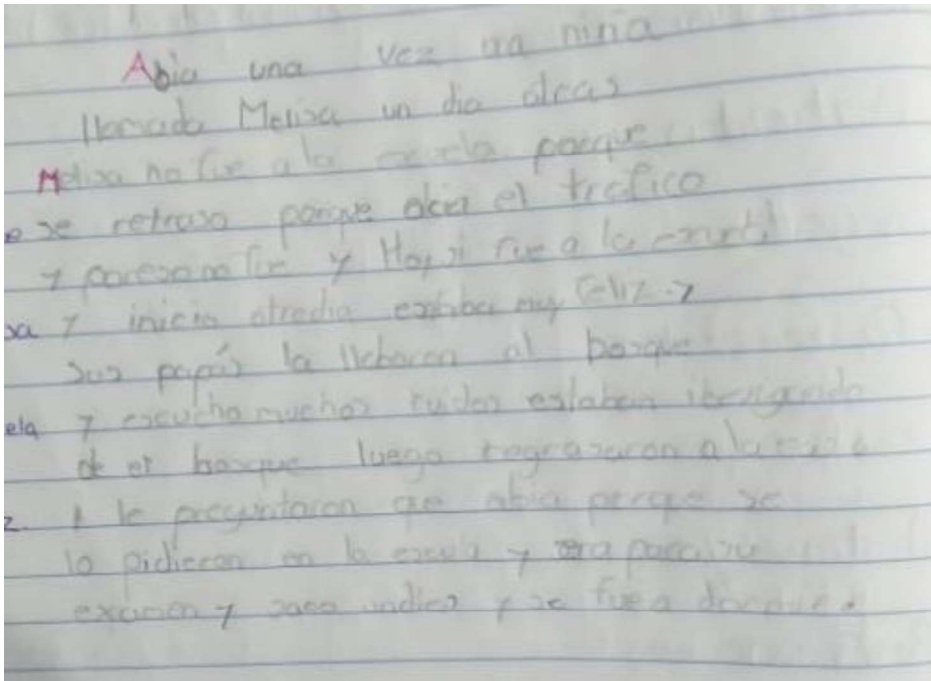 Abia una vez una niña
llamada Melisa un dia
Melisa no fue a la escuela porque
se retraso porque abia el trafico
y no fue y Hoy si fue a la
sa y inicio otro dia estaba muy feliz y
sus papás la llebaron al bosque
ela y escucho muchos ruidos estaban
de el bosque luego regrasaron a la
z. le preguntaron que abia porque se
lo pidieron en la escuela y era para su
y saco y se fue a